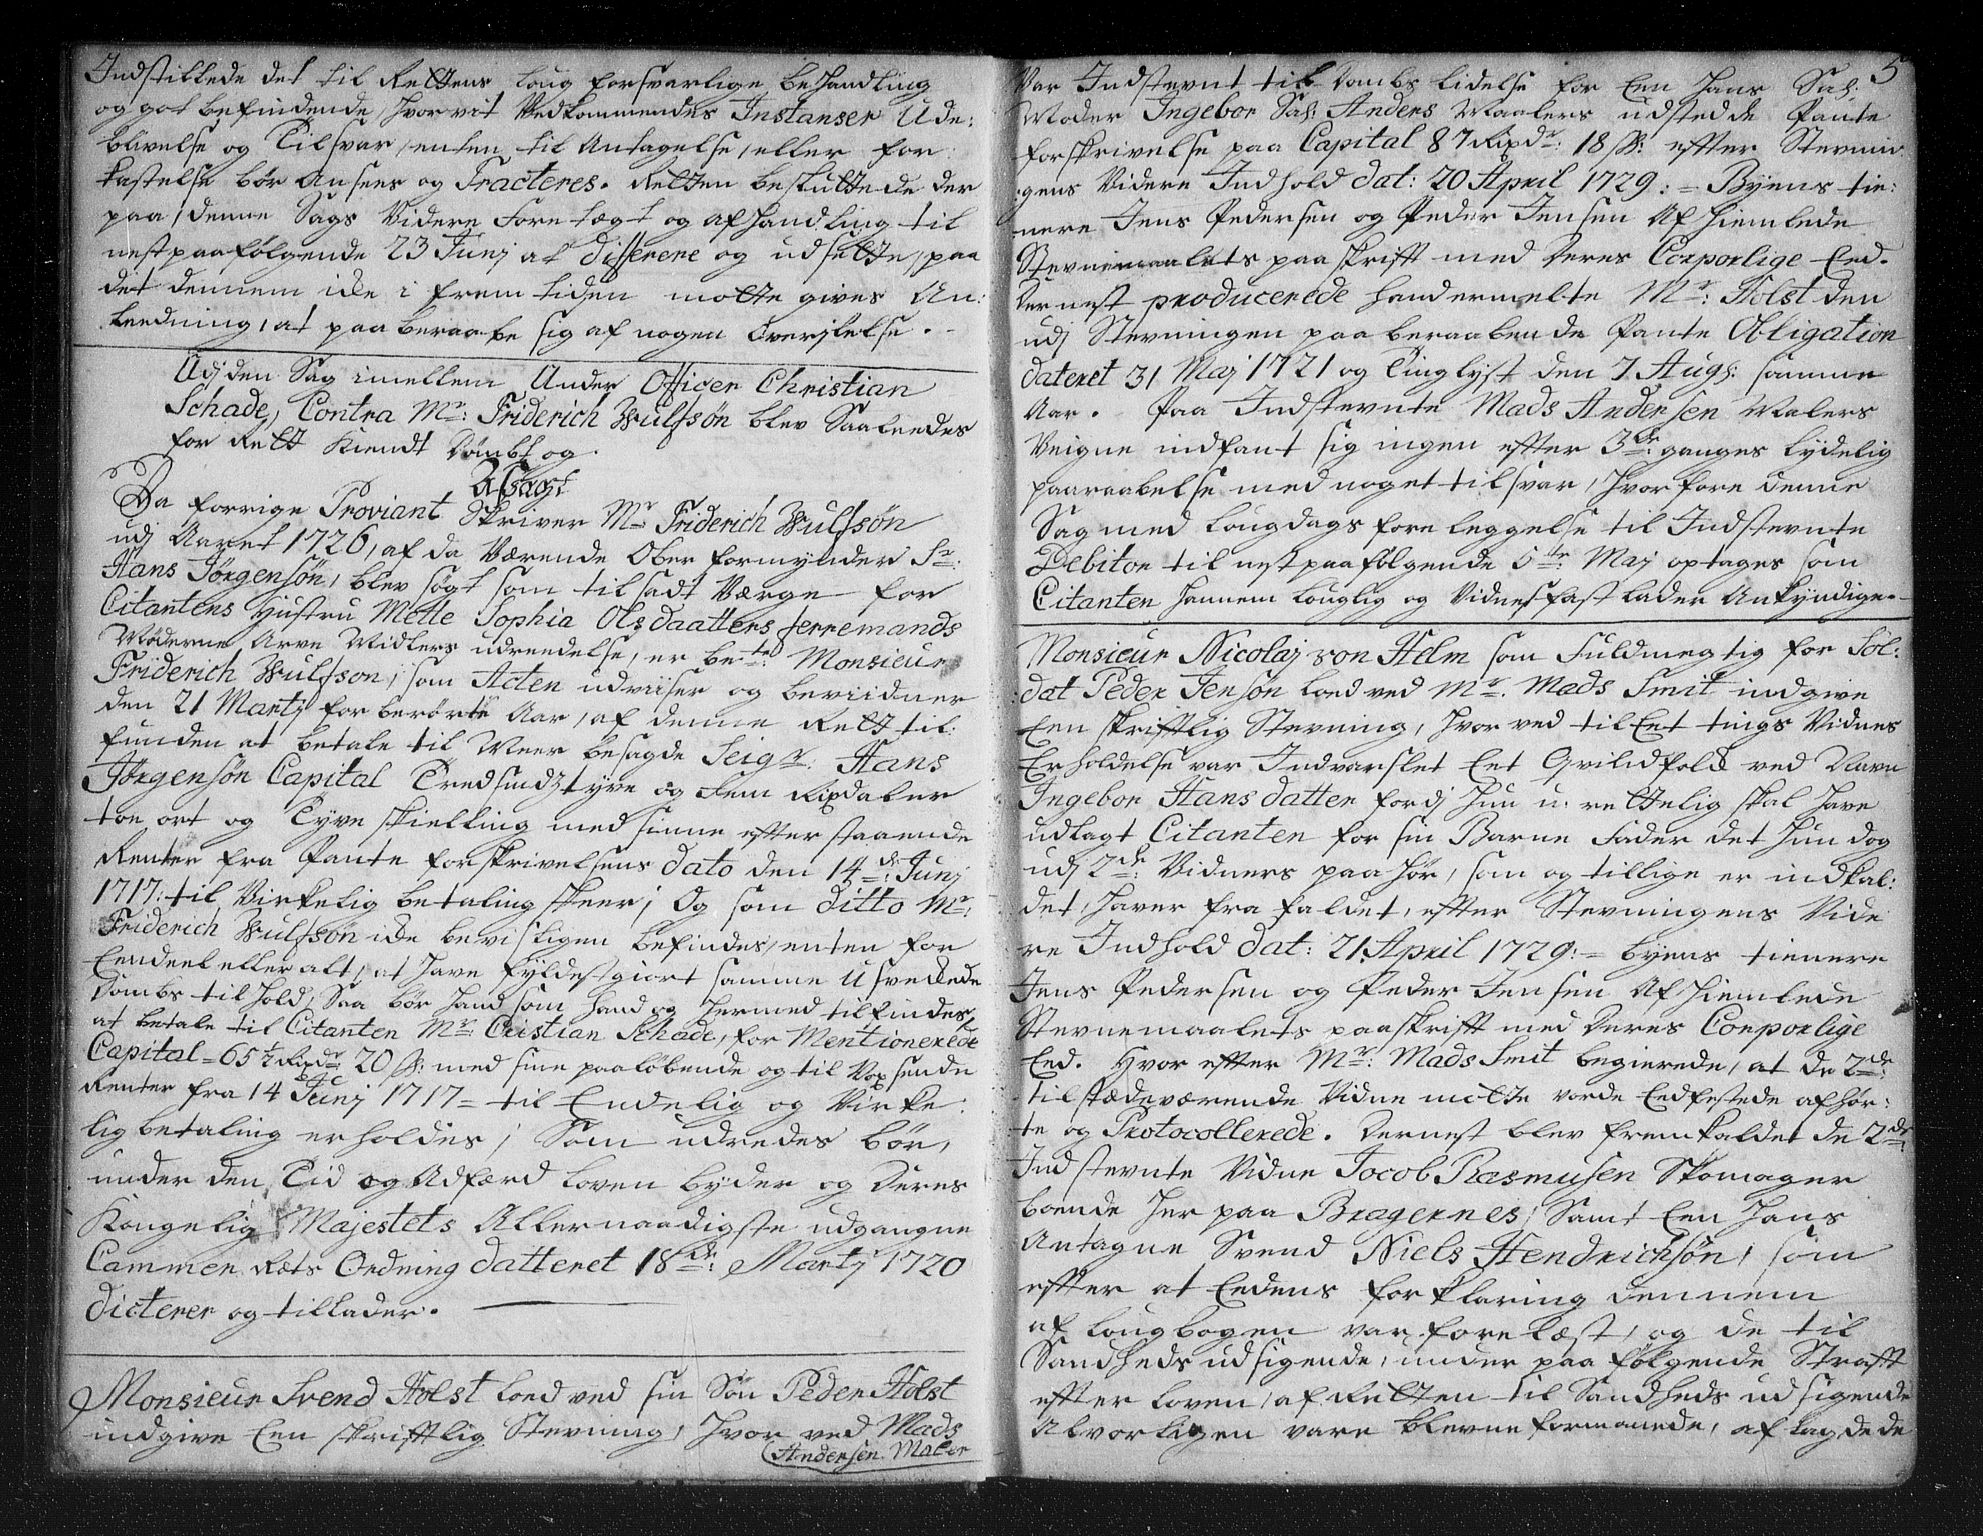 Indstillede det til Rettens loug forsvarlige behandling
og got befindende, hvorvit Vedkommendes Instanser, Ude:
blivelse og Tilsvar, enten til Antagelse, eller for:
kastelse bør Ansees og Tracteres. Retten besluttede der
paa, denne Sags Videre Foretægt og afhandling til
nestpaafølgende 23 Junj at differere og udsette, paa
det dennem icke i fremtiden motte gives An:
leedning, at paaberaabe sig af nogen Overjlelse.
Udj den Sag imellem Under Officer Christian
Schade, Contra Mr: Friderich Wulfsøn blev Saaleedes
for Rett Kiendt Dømbt og
Afsagt
Da forrige Proviant Skriver Mr Friderich Wulfsøn
udj Aaret 1726, af da Værende Ober formynder Sr:
Hans Jørgensøn, blev søgt som tilsadt Værge for
Citantens Hustru Mette Sophia Olsdaatters Ferremands
Møderne Arve Midlers udreedelse, er bete: Monsieur
Friderich Wulfson, som Acten udviiser og beviidner
den 21 Martj for berørte Aar, af denne Rett til:
funden at betale til Meer besagde Seigr: Hans
Jørgensøn Capital Tredsindztyve og fem Rixdaler
toe ort og Tyve skielling med sinne efter staaende
Renter fra Pante forskrivelsens dato den 14de: Junj
1717: til Virkelig betaling skeer; Og som ditto Mr:
Friderich Wulfsøn icke bevisligen befindes, enten for
Eendeel eller alt, at have fyldestgiort samme Usvækede
Dombs tilhold, Saa bør hand som hand og hermed tilfindes,
at betale til Citanten Mr: Cristian Schade, for Mentionerede
Capital = 65½ Rixdr 20 s: med sine paaløbende og til Voxsende
Renter fra 14 Junj 1717 = til Endelig og Virke:
lig betaling erholdes; Som udredes bør,
under den Tid og Adfærd Loven byder og Deres
Kongelig Majestets Allernaadigste udgangne
Cammer Rets Ordning datteret 18de: Martj 1720
dicterer og tillader.
Monsieur Svend Holst loed ved sin Søn Peder Holst
indgive Een skrifftlig Stevning, hvor ved Mads
Andersen Maler
5
Var Indstevnt til Dombs lidelse for Een hans Sal:
Moder Ingebor Sal: Anders Maalers udstedde Pante
forskrivelse paa Capital 87 Rixdr: 18 s: effter Stevnin
gens Videre Indhold dat: 20 April 1729: = Byens tie:
nere Jens Pedersen og Peder Jensen Afhiemlede
Stevnemaalets paaskrift med Deres Corporlige Eed.
Dernest producerede handermelte Mr: Holst den
udj Stevningen paaberaabende Pante Obligation
dateret 31 Maj 1721 og Tinglyst den 7 Augs: samme
Aar. Paa Indstevnte Mads Andersen Malers
Veigne indfant sig ingen effter 3de: ganges lydelig
paaraabelse med noget tilsvar, hvorfore denne
Sag med Lougdags foreleggelse til Indstevnte
Debitor til nestpaafølgende 5te: Maj optages som
Citanten hannem louglig og Vidnesfast lader Ankyndige.
Monsieur Nicolaj von Helm som Fuldmegtig for Sol:
dat Peder Jensøn loed ved Mr. Mads Smit indgive
Een skrifftlig Stevning, hvor ved til Eet tings Vidnes
Erholdelse var Indvarslet Eet Qvindfolck ved Navn
Ingebor Hans datter fordj hun u:rettelig skal have
udlagt Citanten for sin Barne Fader det hun dog
udj 2de: Vidners paahør, som og tillige er indkal:
det, haver fra faldet, effter Stevningens Vide
re Indhold dat: 21 April 1729: = byens tienere
Jens Pedersen og Peder Jensen Afhiemlede
Stevnemaalets paaskrifft med Deres Corporlige
Eed. Hvor effter Mr: Mads Smit begierede, at de 2de:
tilstædeværende Vidne motte vorde Eedfestede afhør:
te og Protocollerede. Dernest blev fremkaldet de 2de
Indstevnte Vidne Jocob Rasmusen Skomager
boende her paa Bragernes, Samt Een hans
Antagne Svend Niels Hendrichsøn, som
effter at Eedens forklaring dennem
af lougbogen var forelæst, og de til
Sandheds udsigende, under paafølgende Strafft
effter loven, af Retten til Sandheds udsigende
Alvorligen vare blevne formanede, aflagde de